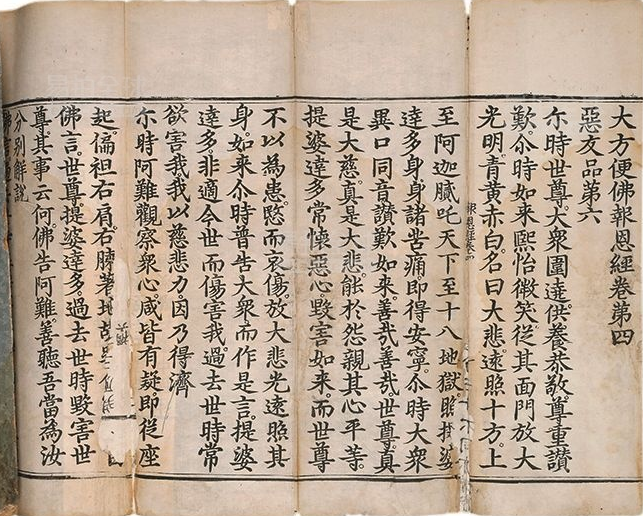 大方便佛報恩經卷第四
惡友品第六
尒時世尊。大衆圍遶。供養恭敬。尊重讚
歎。尒時如來熙怡微笑。從其面門放大
光明。青黄赤白。名曰大悲。遠照十方。上
至阿迦膩吒天。下至十八地獄。照提婆
達多身。身諸苦痛即得安寧。尒時大衆
異口同音讚歎如來。善哉善哉。世尊。真
是大慈。真是大悲。能於怨親其心平等。
提婆達多常懷惡心。毀害如來。而世尊
不以為患。愍而哀傷。放大悲光遠照其
身。如來尒時普告大衆而作是言。提婆
達多非適今世而傷害我。過去世時常
欲害我。我以慈悲力。因乃得濟
尒時阿難觀察衆心。咸皆有疑。即從座
起。偏袒右肩。右膝著地
佛言。世尊。提婆達多。過去世時毀害世
尊。其事云何。佛告阿難。善聽。吾當為汝
分别解說